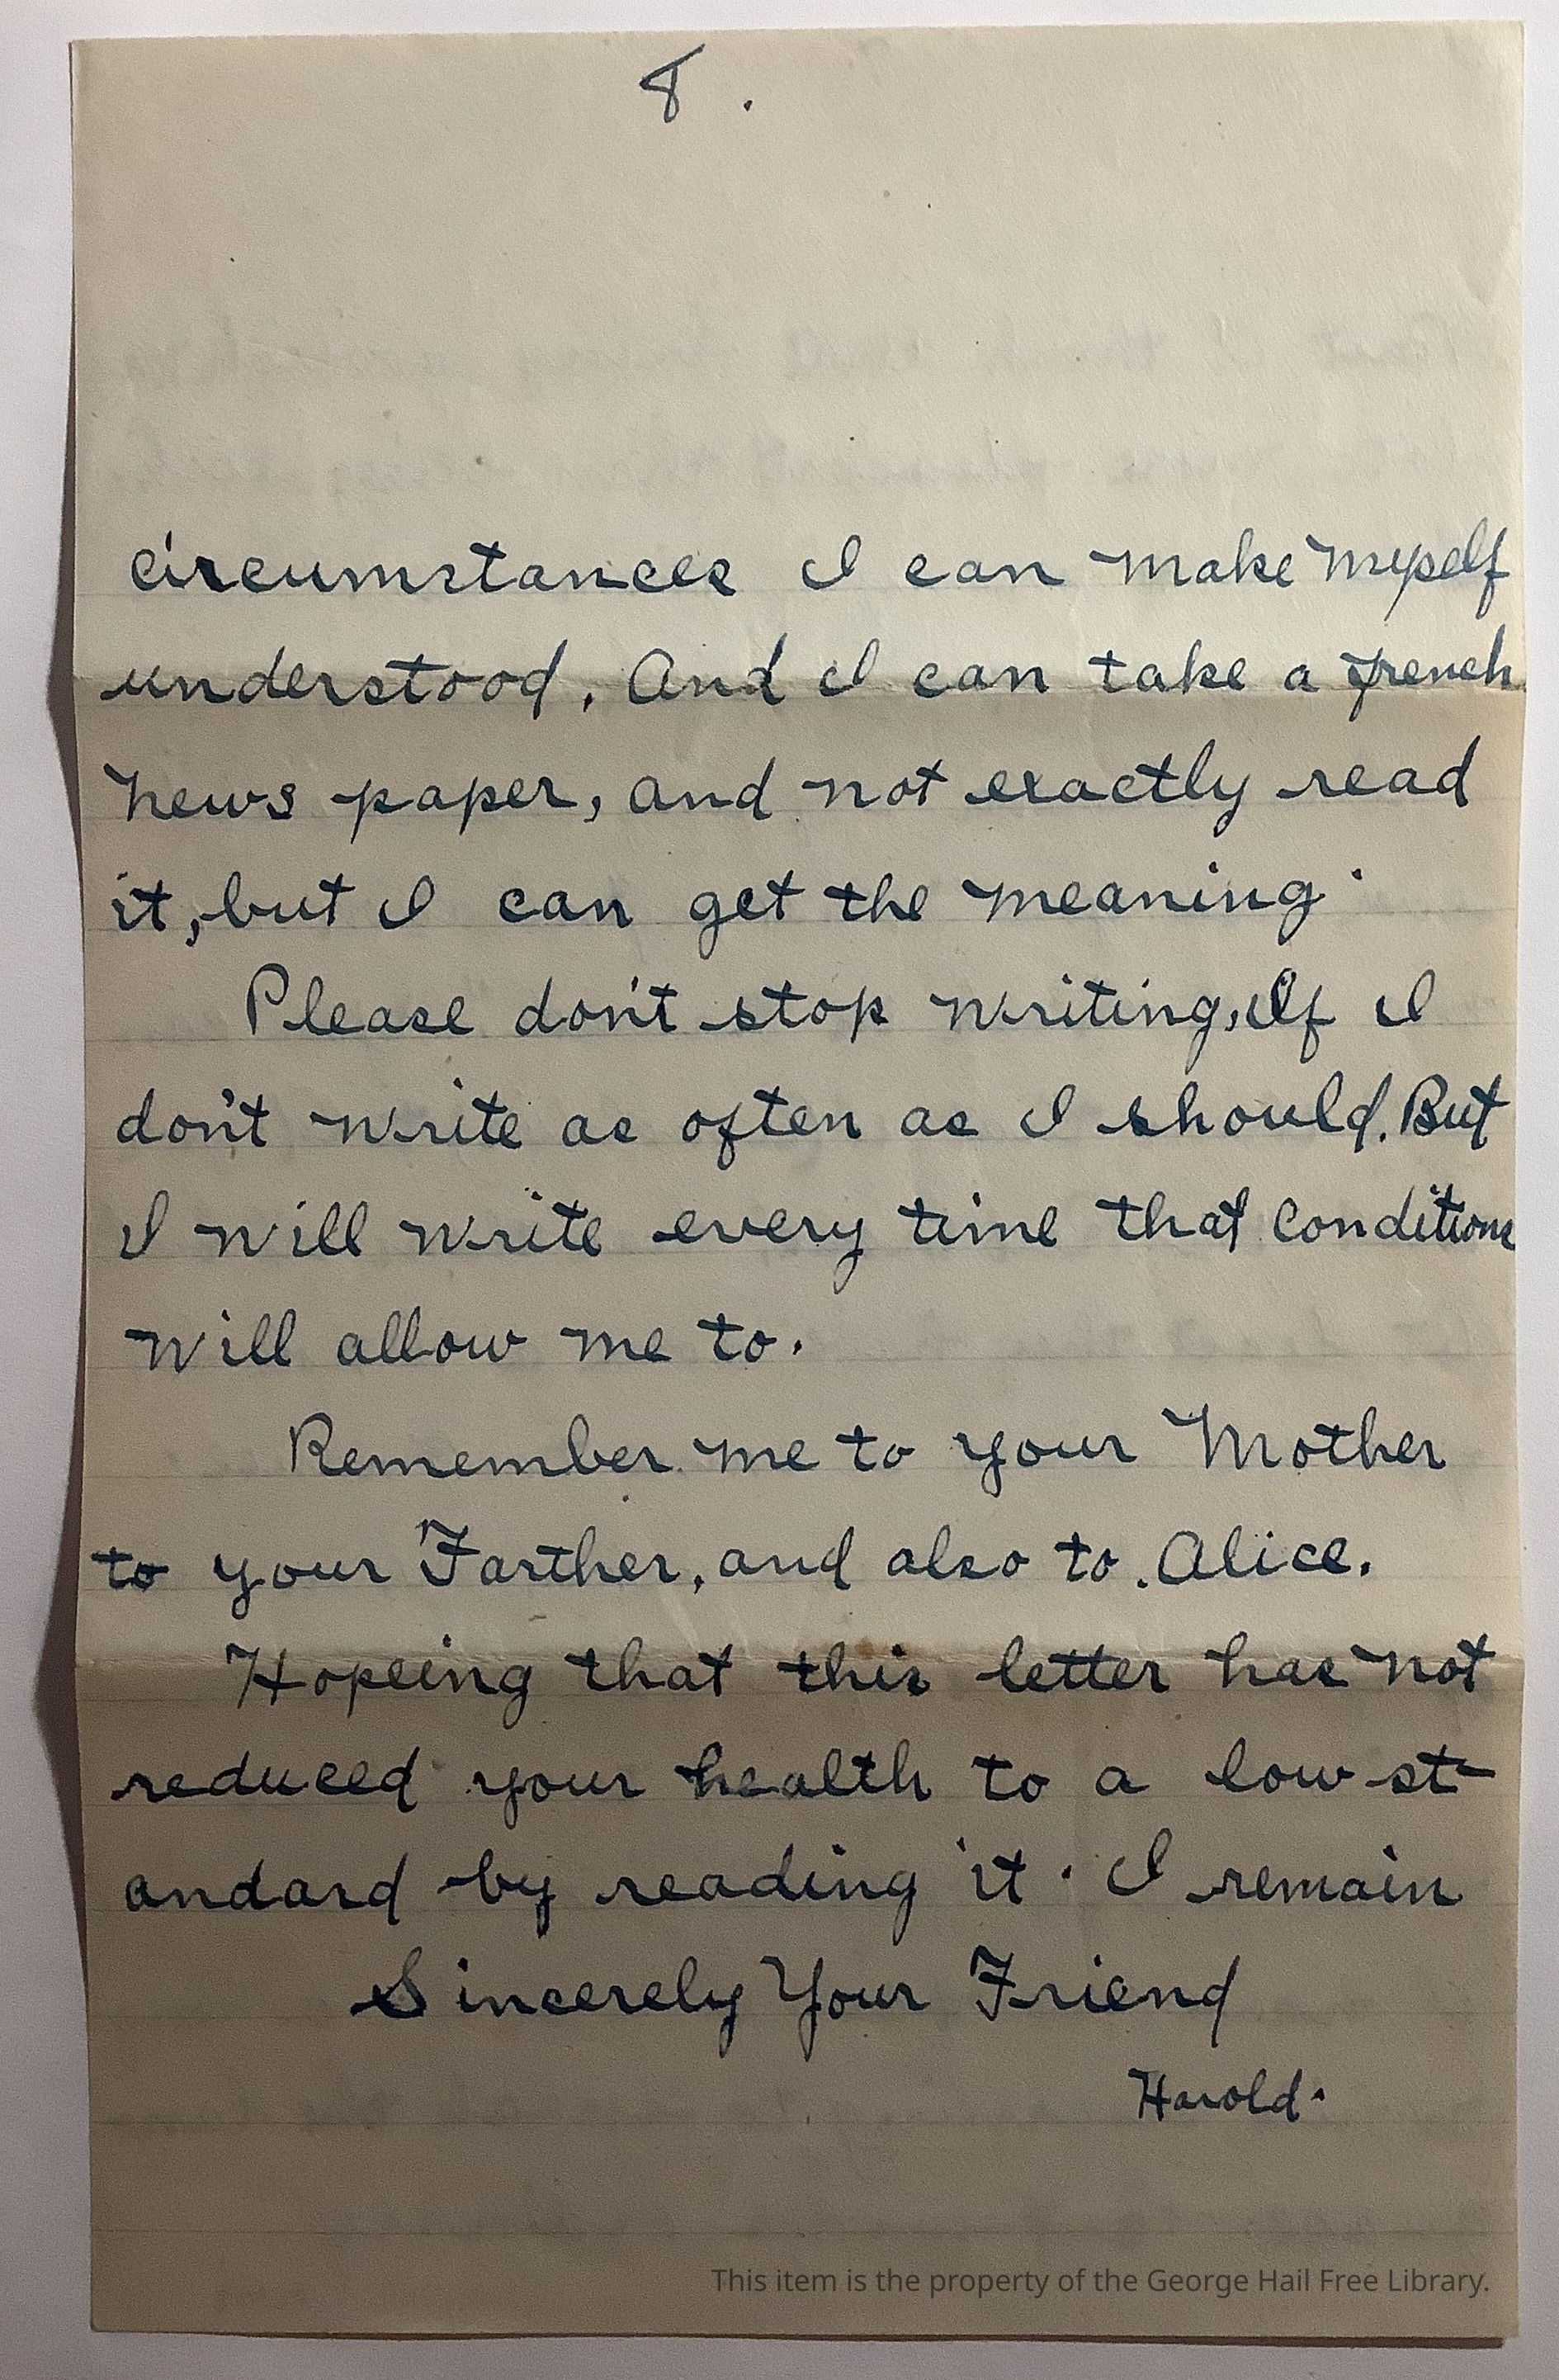 8.
circumstances I can make myself
understood. And I can take a french
news paper, and not exactly read
it, but I can get the meaning.
Please don't stop writing, If I
don't write as often as I should. But
I will write every time that conditions
will allow me to.
Remember me to your Mother
to your Farther, and also to. Alice.
Hopeing that this letter has not
reduced your health to a low st-
andard by reading it. I remain
Sincerely Your Friend
Harold.
This item is the property of the George Hail Free Library.